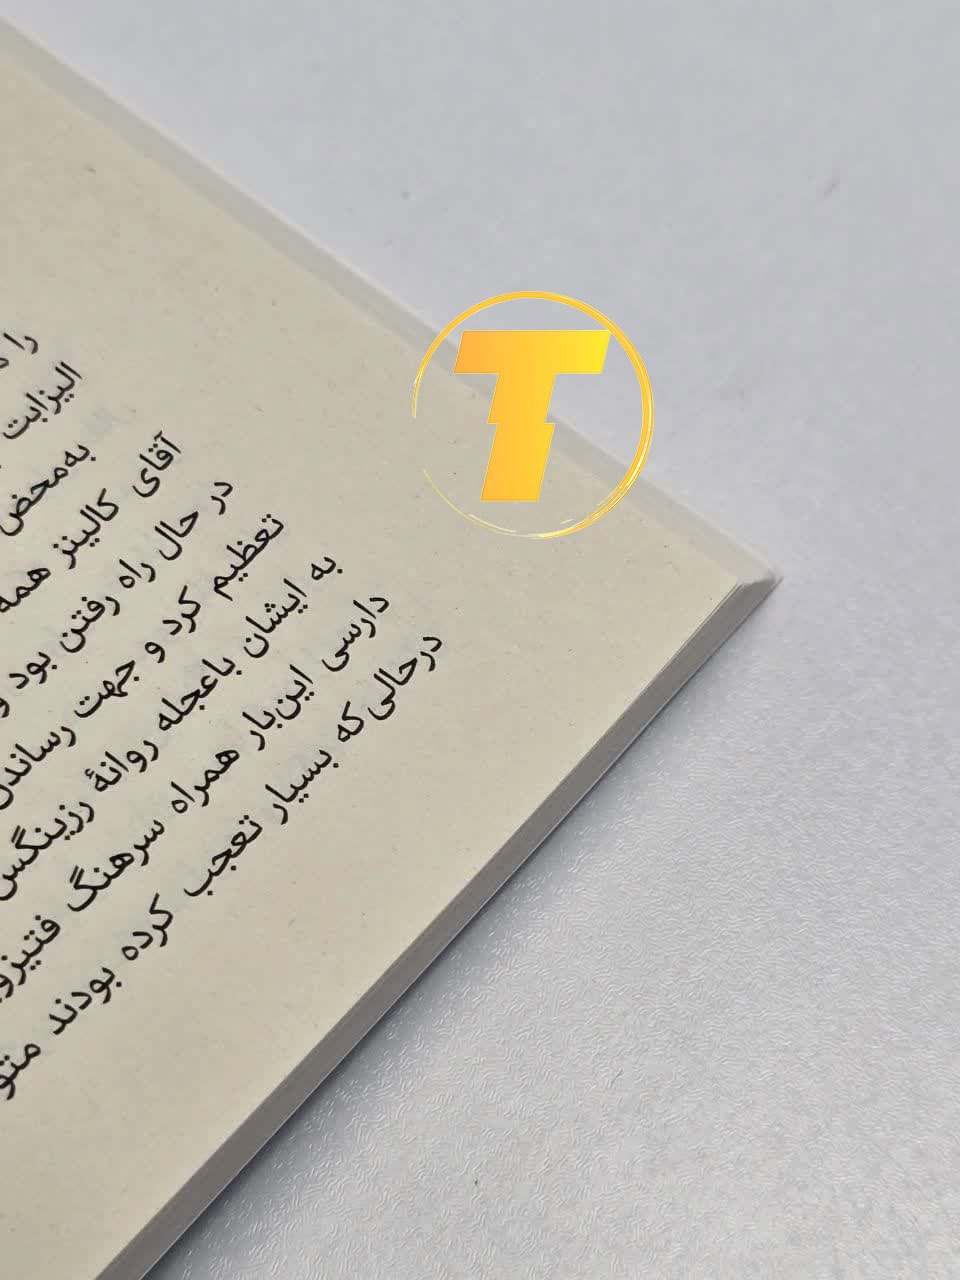 را
الیزابت
به‌محض
آقای کالینز همه
در حال راه رفتن بود و
تعظیم کرد و جهت رساندن
به ایشان باعجله روانهٔ رزینگس
دارسی این‌بار همراه سرهنگ فتیزو
درحالی‌که بسیار تعجب کرده بودند متو
T